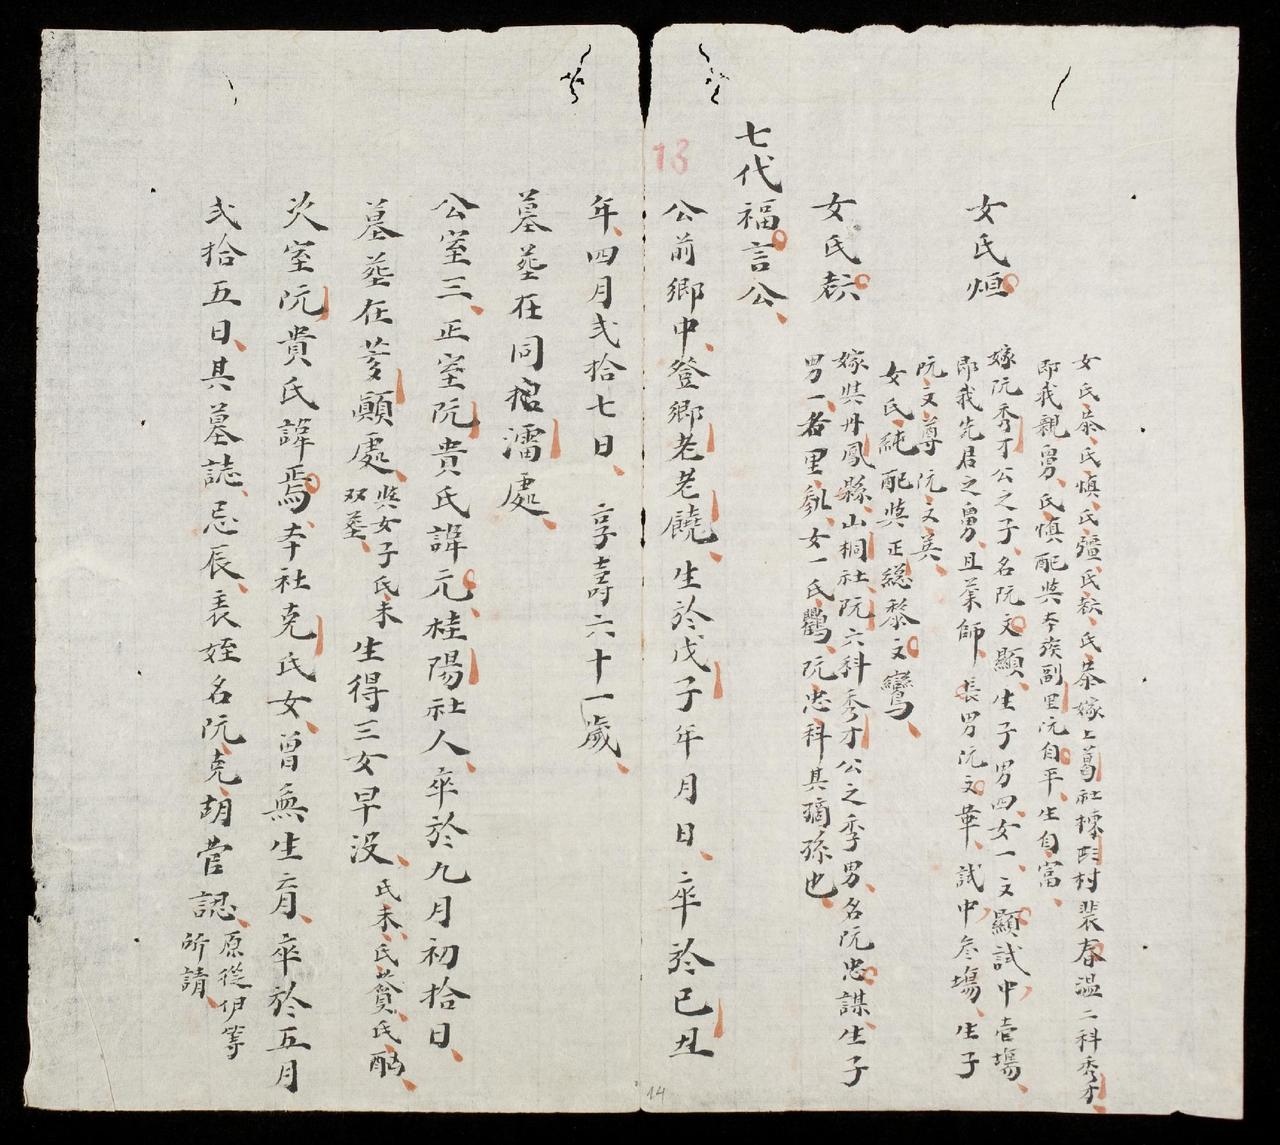 女氏恭、氏慎、氏彊、氏𣠶、氏恭嫁上葛社棟形村裴春溫二科秀才、
即我親舅、氏慎配與本族副里阮自平、生自富、
女氏烜
嫁阮秀才公之子、名阮文顯、生子男四女一、文顯試中壹場、
即我先君之舅、且業師、長男阮文華、試中叄場、生子
阮文尊、阮文英、
女氏純配與正総黎文鸞、
女氏
嫁與丹鳳縣山桐社阮六科秀才公之季男、名阮忠謀、生子
男一、名里虬、女一氏鸛、阮忠科其嫡孫也、
七代福言公、
13
公前鄉中、登鄉老老饒、生於戊子年月日、卒於已丑
年、四月弍拾七日、享壽六十一歲、
墓葬在同招澑處、
公室三、正室阮貴氏諱元、桂陽社人、卒於九月初拾日、
墓葬在芗顛處、與女子氏未双葬、生得三女早没、氏未、氏蕡、氏酩、
次室阮貴氏諱焉、本社克氏女、曾無生育、卒於五月
弍拾五日、其墓誌、忌辰、表姪名阮克胡嘗認、原從伊等所請、
14